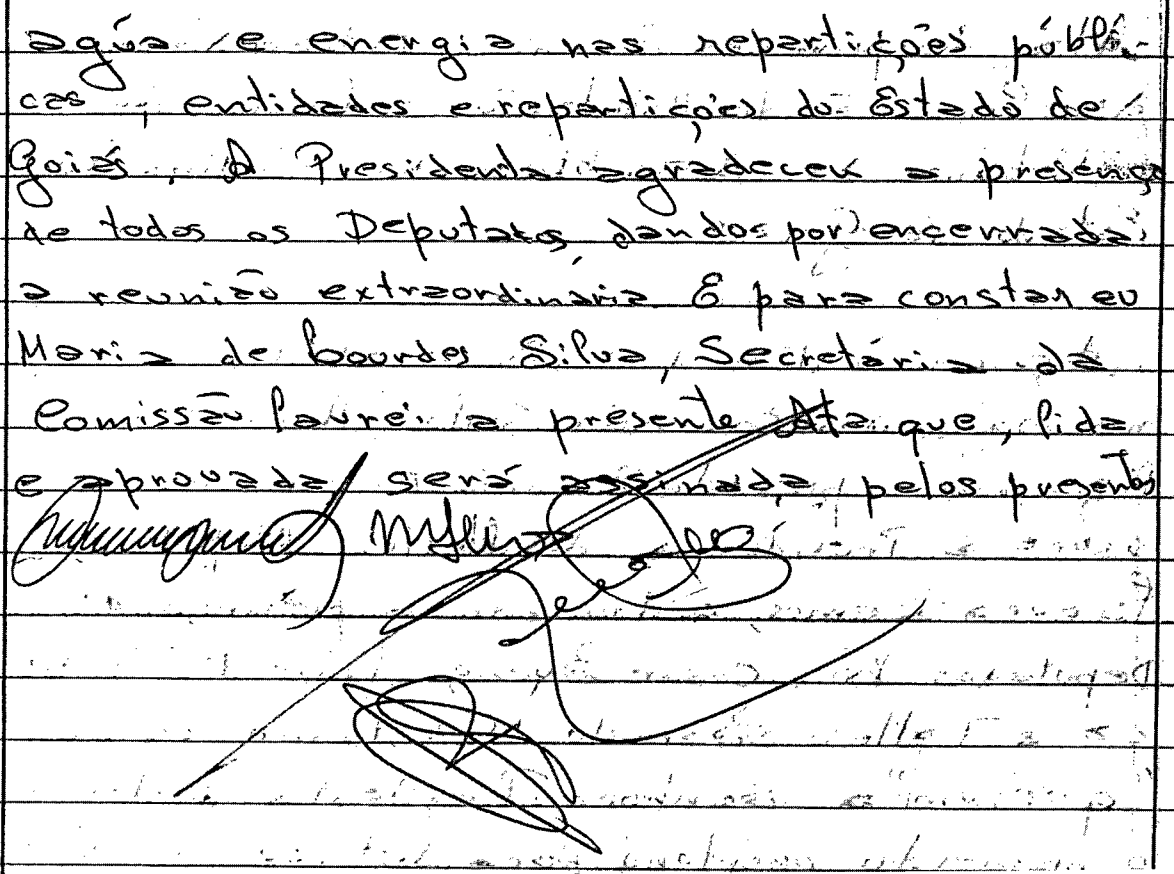 agúa e energia nas repartições públi-
cas, entidades e repartições do Estado de
Goiás. A Presidenta agradeceu a presença
de todos os Deputados, dandos por encerrada
a reunião extraordinária. E para constar eu
Maria de Lourdes Silva, Secretária da
Comissão lavrei a presente Ata que, lida
e aprovada será assinada pelos presentes